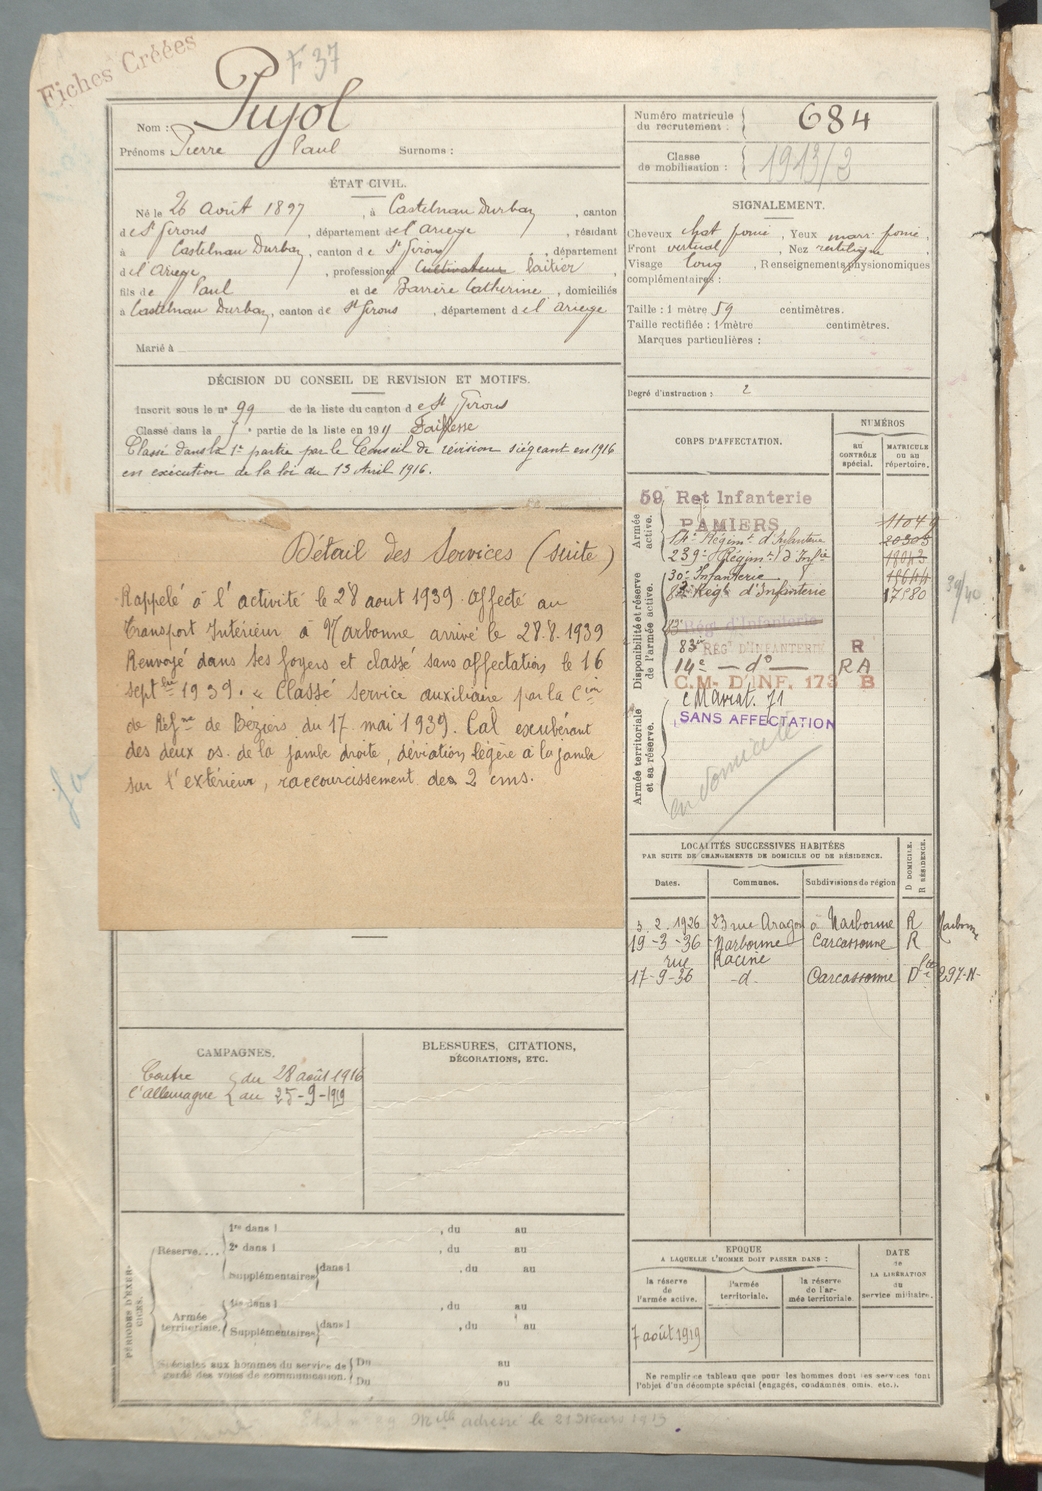 Fiches Créées
F 37
Pujol
Nom :
Prénoms Pierre Paul Surnoms :
Numéro matricule du recrutement : 684
Classe de mobilisation : 1913/3
ÉTAT CIVIL.
Né le 26 Août 1897, à Castelnau Durban, canton
de St Girons, département de l'Ariège, résidant
à Castelnau Durban, canton de St Girons, département
de l'Ariège, profession de Cultivateur laitier,
fils de Paul et de Barrère Catherine, domiciliés
à Castelnau Durban, canton de St Girons, département de l'Ariège
Marié à
SIGNALEMENT.
Cheveux chat foncé, Yeux marr. foncé,
Front vertical, Nez rectiligne,
Visage long, Renseignements physionomiques
complémentaires :
Taille : 1 mètre 59 centimètres.
Taille rectifiée : 1 mètre centimètres.
Marques particulières :
Degré d'instruction : 2
DÉCISION DU CONSEIL DE REVISION ET MOTIFS.
Inscrit sous le n° 99 de la liste du canton de St Girons
Classé dans la partie de la liste en 19 Faiblesse
Classé dans la 1e partie par le Conseil de révision siégeant en 1916
en exécution de la loi du 13 Avril 1916.
Détail des Services (suite)
Rappelé à l'activité le 28 aout 1939. affecté au
Transport Intérieur à Narbonne arrivé le 28.8.1939
Renvoyé dans ses foyers et classé sans affectation le 16
septbre 1939. « Classé service auxiliaire par la Cion
de Réfme de Béziers du 17 mai 1939. Cal exubérant
des deux os de la jambe droite, déviation légère à la jambe
sur l'extérieur, raccourcissement de 2 cms.
CORPS D'AFFECTATION.
NUMÉROS
au CONTRÔLE spécial.
MATRICULE ou au répertoire.
Armée active.
59 Rgt Infanterie
PAMIERS 11049
14e Régimt d'Infanterie 20305
239e Régimt d'Infie 18043
Disponibilité et réserve de l'armée active.
30e Infanterie 18644
83e Régt d'Infanterie 17980
39/40
Régt d'Infanterie
83e RÉGT D'INFANTERIE R
14e — do — RA
C.M. D'INF. 173 B
Armée territoriale et sa réserve.
C Mariat. 71
SANS AFFECTATION
en domicile
LOCALITÉS SUCCESSIVES HABITÉES
PAR SUITE DE CHANGEMENTS DE DOMICILE OU DE RÉSIDENCE.
Dates. Communes. Subdivisions de région D DOMICILE. R RÉSIDENCE.
3.2.1926 23 rue Aragon à Narbonne R Narbonne
19-3-36 Narbonne Carcassonne R
rue Racine
17-9-36 -d- Carcassonne D 297-N-
CAMPAGNES.
Contre l'Allemagne { du 28 août 1916
au 25-9-1919
BLESSURES, CITATIONS,
DÉCORATIONS, ETC.
PÉRIODES D'EXERCICES.
Réserve....
1re dans l , du au
2e dans l , du au
Supplémentaires dans l , du au
Armée territoriale.
1re dans l , du au
Supplémentaires dans l , du au
Spéciales aux hommes du service de
garde des voies de communication.
Du au
Du au
EPOQUE
A LAQUELLE L'HOMME DOIT PASSER DANS :
DATE de LA LIBÉRATION du service militaire.
la réserve de l'armée active.
l'armée territoriale.
la réserve de l'armée territoriale.
7 août 1919
Ne remplir ce tableau que pour les hommes dont les services font
l'objet d'un décompte spécial (engagés, condamnés, omis, etc.).